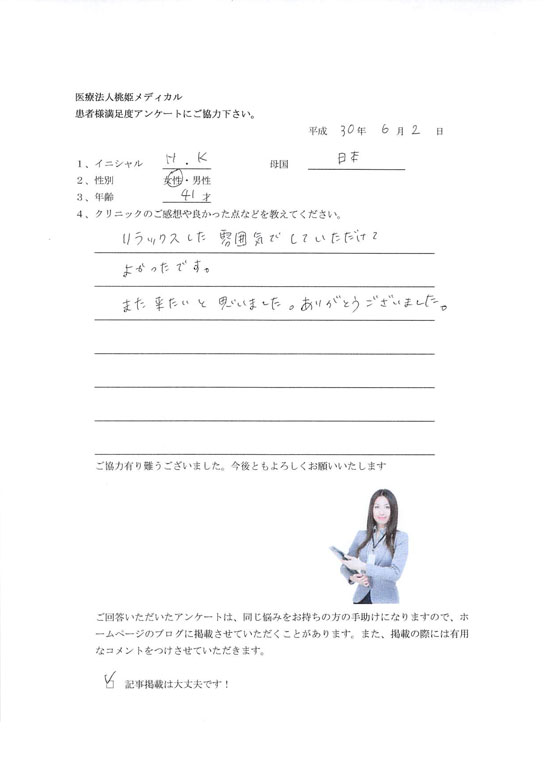 医療法人桃姫メディカル
患者様満足度アンケートにご協力下さい。
平成 30年 6月 2日
1、イニシャル H．K 母国 日本
2、性別 女性・男性
3、年齢 41才
4、クリニックのご感想や良かった点などを教えてください。
リラックスした雰囲気でしていただけて
よかったです。
また来たいと思いました。ありがとうございました。
ご協力有り難うございました。今後ともよろしくお願いいたします
ご回答いただいたアンケートは、同じ悩みをお持ちの方の手助けになりますので、ホ
ームページのブログに掲載させていただくことがあります。また、掲載の際には有用
なコメントをつけさせていただきます。
記事掲載は大丈夫です！